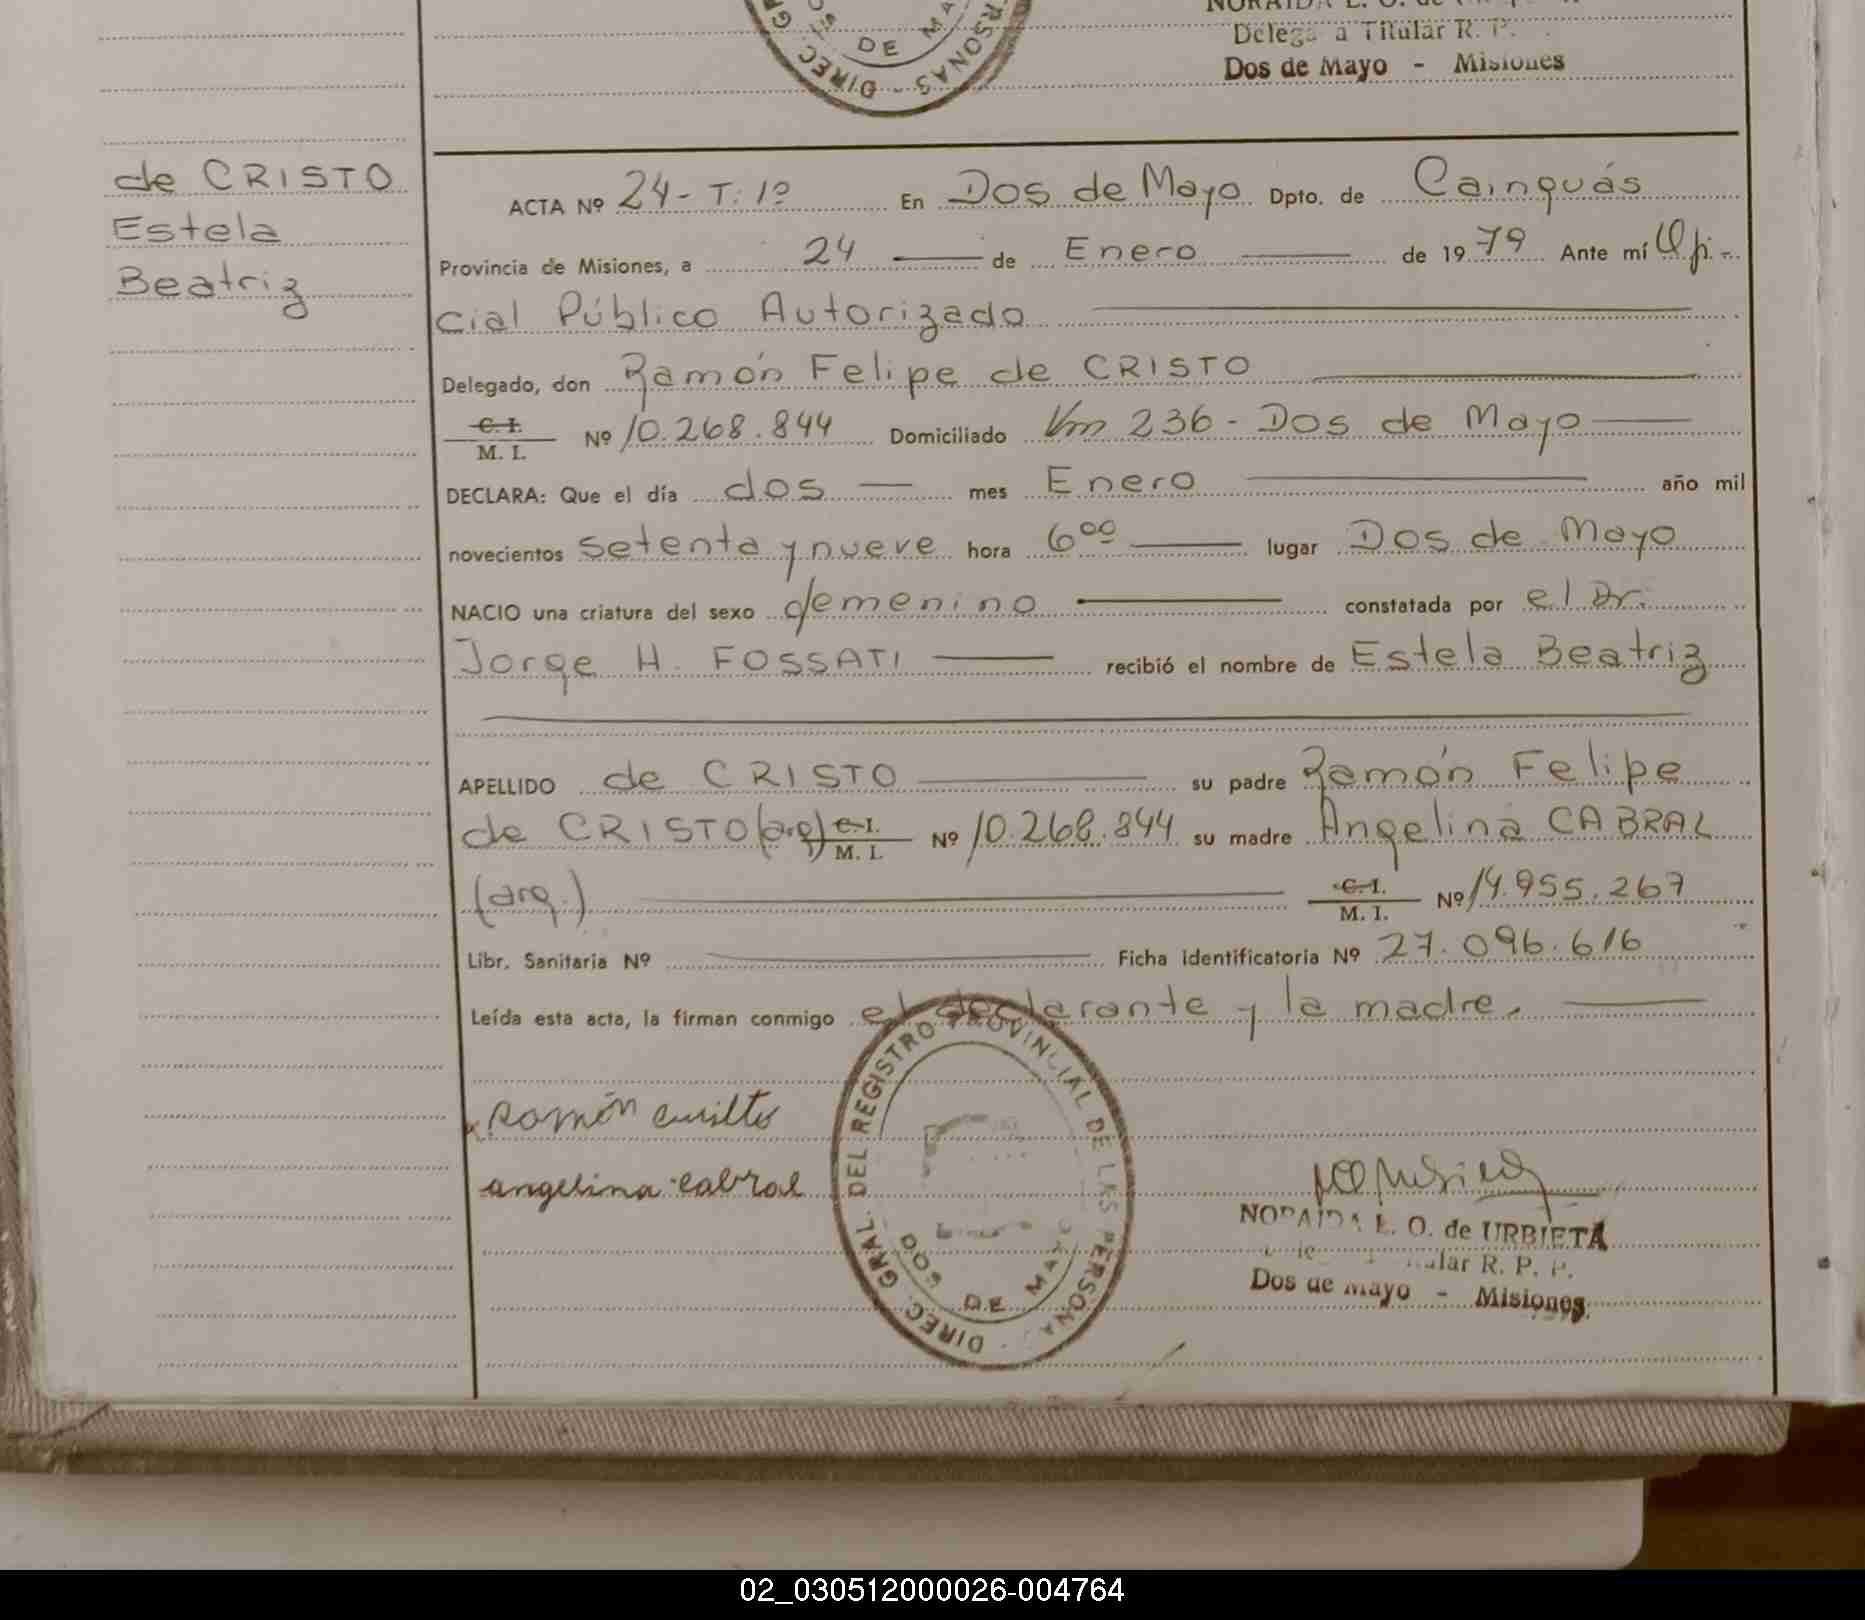 NORAIDA E. O. de
Delega a Titular R. P.
Dos de Mayo - Misiones
DIREC. GR
RSONAS
DE MA
de CRISTO
Estela
Beatriz
ACTA Nº 24 - T: 1º En Dos de Mayo Dpto. de Cainguás
Provincia de Misiones, a 24 de Enero de 1979 Ante mí Ofi-
cial Público Autorizado
Delegado, don Ramón Felipe de CRISTO
C. I.
M. I. Nº 10.268.844 Domiciliado Km 236 - Dos de Mayo
DECLARA: Que el día dos mes Enero año mil
novecientos setenta y nueve hora 6⁰⁰ lugar Dos de Mayo
NACIO una criatura del sexo femenino constatada por el Dr.
Jorge H. FOSSATI recibió el nombre de Estela Beatriz
APELLIDO de CRISTO su padre Ramón Felipe
de CRISTO (arg) C. I. M. I. Nº 10.268.844 su madre Angelina CABRAL
(arg.) C. I. M. I. Nº 14.955.267
Libr. Sanitaria Nº Ficha identificatoria Nº 27.096.616
Leída esta acta, la firman conmigo el declarante y la madre.
Ramón
angelina cabral
DIREC. GRAL. DEL REGISTRO PROVINCIAL DE LAS PERSONA
DOS DE MAYO
NORAIDA E. O. de URBIETA
lar R. P. P.
Dos de Mayo - Misiones
02_030512000026-004764